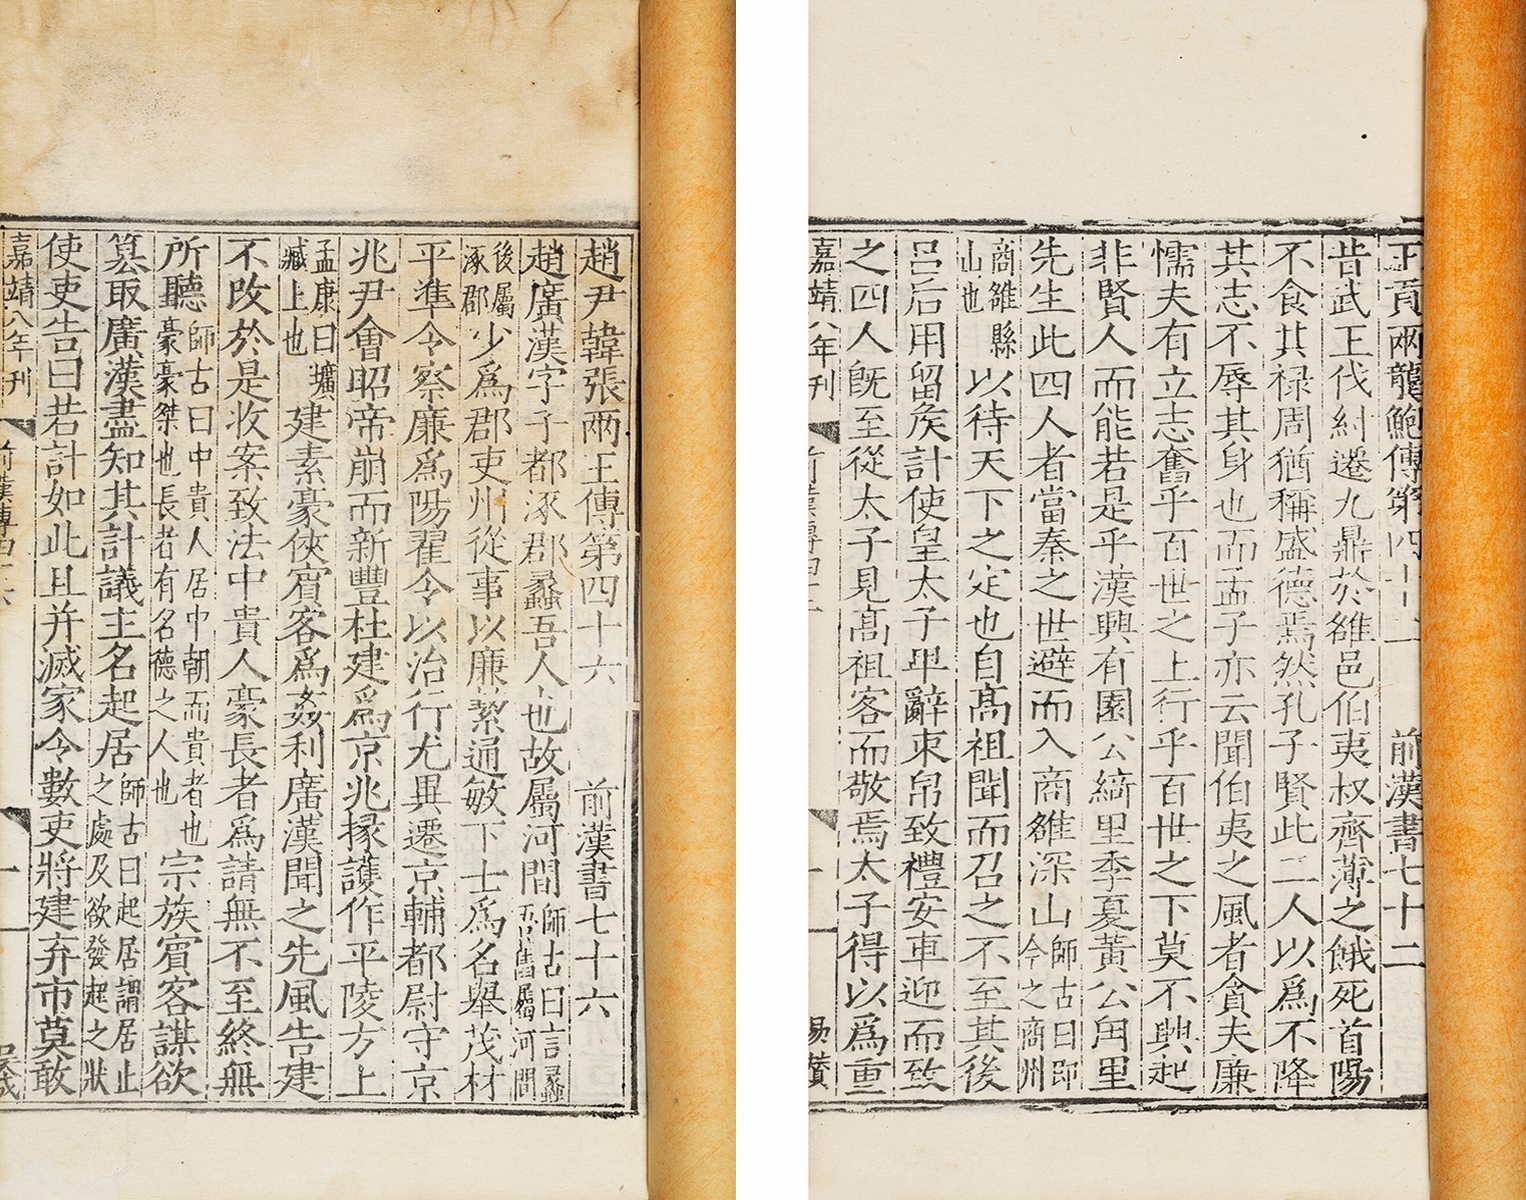 王貢兩龔鮑傳第四十二　前漢書七十二
昔武王伐紂遷九鼎於雒邑伯夷叔齊薄之餓死首陽
不食其祿周猶稱盛德焉然孔子賢此二人以爲不降
其志不辱其身也而孟子亦云聞伯夷之風者貪夫廉
懦夫有立志奮乎百世之上行乎百世之下莫不興起
非賢人而能若是乎漢興有園公綺里季夏黃公甪里
先生此四人者當秦之世避而入商雒深山師古曰即今之商州
商雒縣山也以待天下之定也自髙祖聞而召之不至其後
呂后用留侯計使皇太子卑辭束帛致禮安車迎而致
之四人旣至從太子見髙祖客而敬焉太子得以爲重
嘉靖八年刊　前漢傳四十二　一　易贊
趙尹韓張兩王傳第四十六　前漢書七十六
趙廣漢字子都涿郡蠡吾人也故屬河間師古曰言蠡吾舊屬河間
後屬涿郡少爲郡吏州從事以廉絜通敏下士爲名舉茂材
平準令察廉爲陽翟令以治行尤異遷京輔都尉守京
兆尹會昭帝崩而新豐杜建爲京兆掾護作平陵方上
孟康曰壙臧上也建素豪俠賔客爲姦利廣漢聞之先風告建
不改於是收案致法中貴人豪長者爲請無不至終無
所聽師古曰中貴人居中朝而貴者也豪豪桀也長者有名德之人也宗族賔客謀欲
篡取廣漢盡知其計議主名起居師古曰起居謂居止之處及欲發起之狀
使吏告曰若計如此且并滅家令數吏將建弃市莫敢
嘉靖八年刊　前漢傳四十六　一